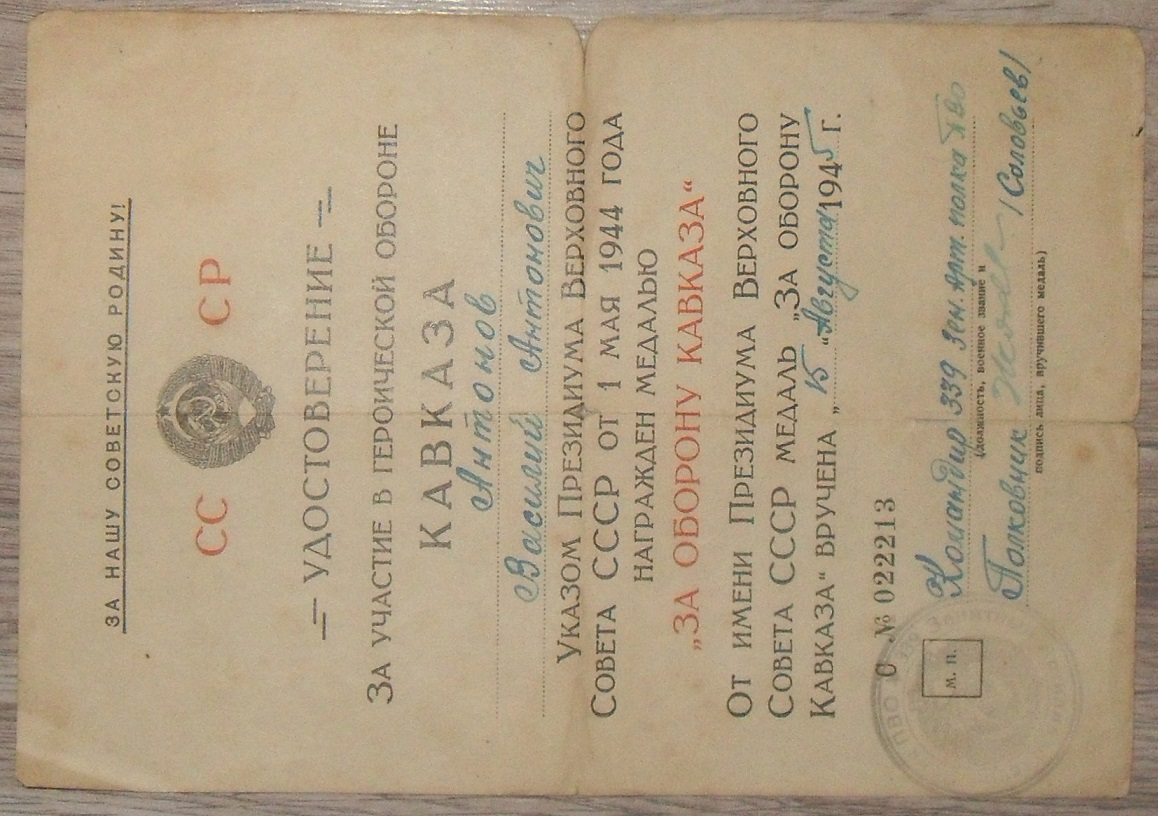 ЗА НАШУ СОВЕТСКУЮ РОДИНУ!
СС СР
УДОСТОВЕРЕНИЕ
ЗА УЧАСТИЕ В ГЕРОИЧЕСКОЙ ОБОРОНЕ
КАВКАЗА
Антонов
Василий Антонович
УКАЗОМ ПРЕЗИДИУМА ВЕРХОВНОГО
СОВЕТА СССР ОТ 1 МАЯ 1944 ГОДА
НАГРАЖДЕН МЕДАЛЬЮ
„ЗА ОБОРОНУ КАВКАЗА“
ОТ ИМЕНИ ПРЕЗИДИУМА ВЕРХОВНОГО
СОВЕТА СССР МЕДАЛЬ „ЗА ОБОРОНУ
КАВКАЗА“ ВРУЧЕНА „15“ Августа 1945 Г.
С № 022213
Командир 339 Зен. Арт. полка ПВО
(должность, военное звание и
Полковник /Соловьев/
подпись лица, вручившего медаль)
М. П.
ПВО